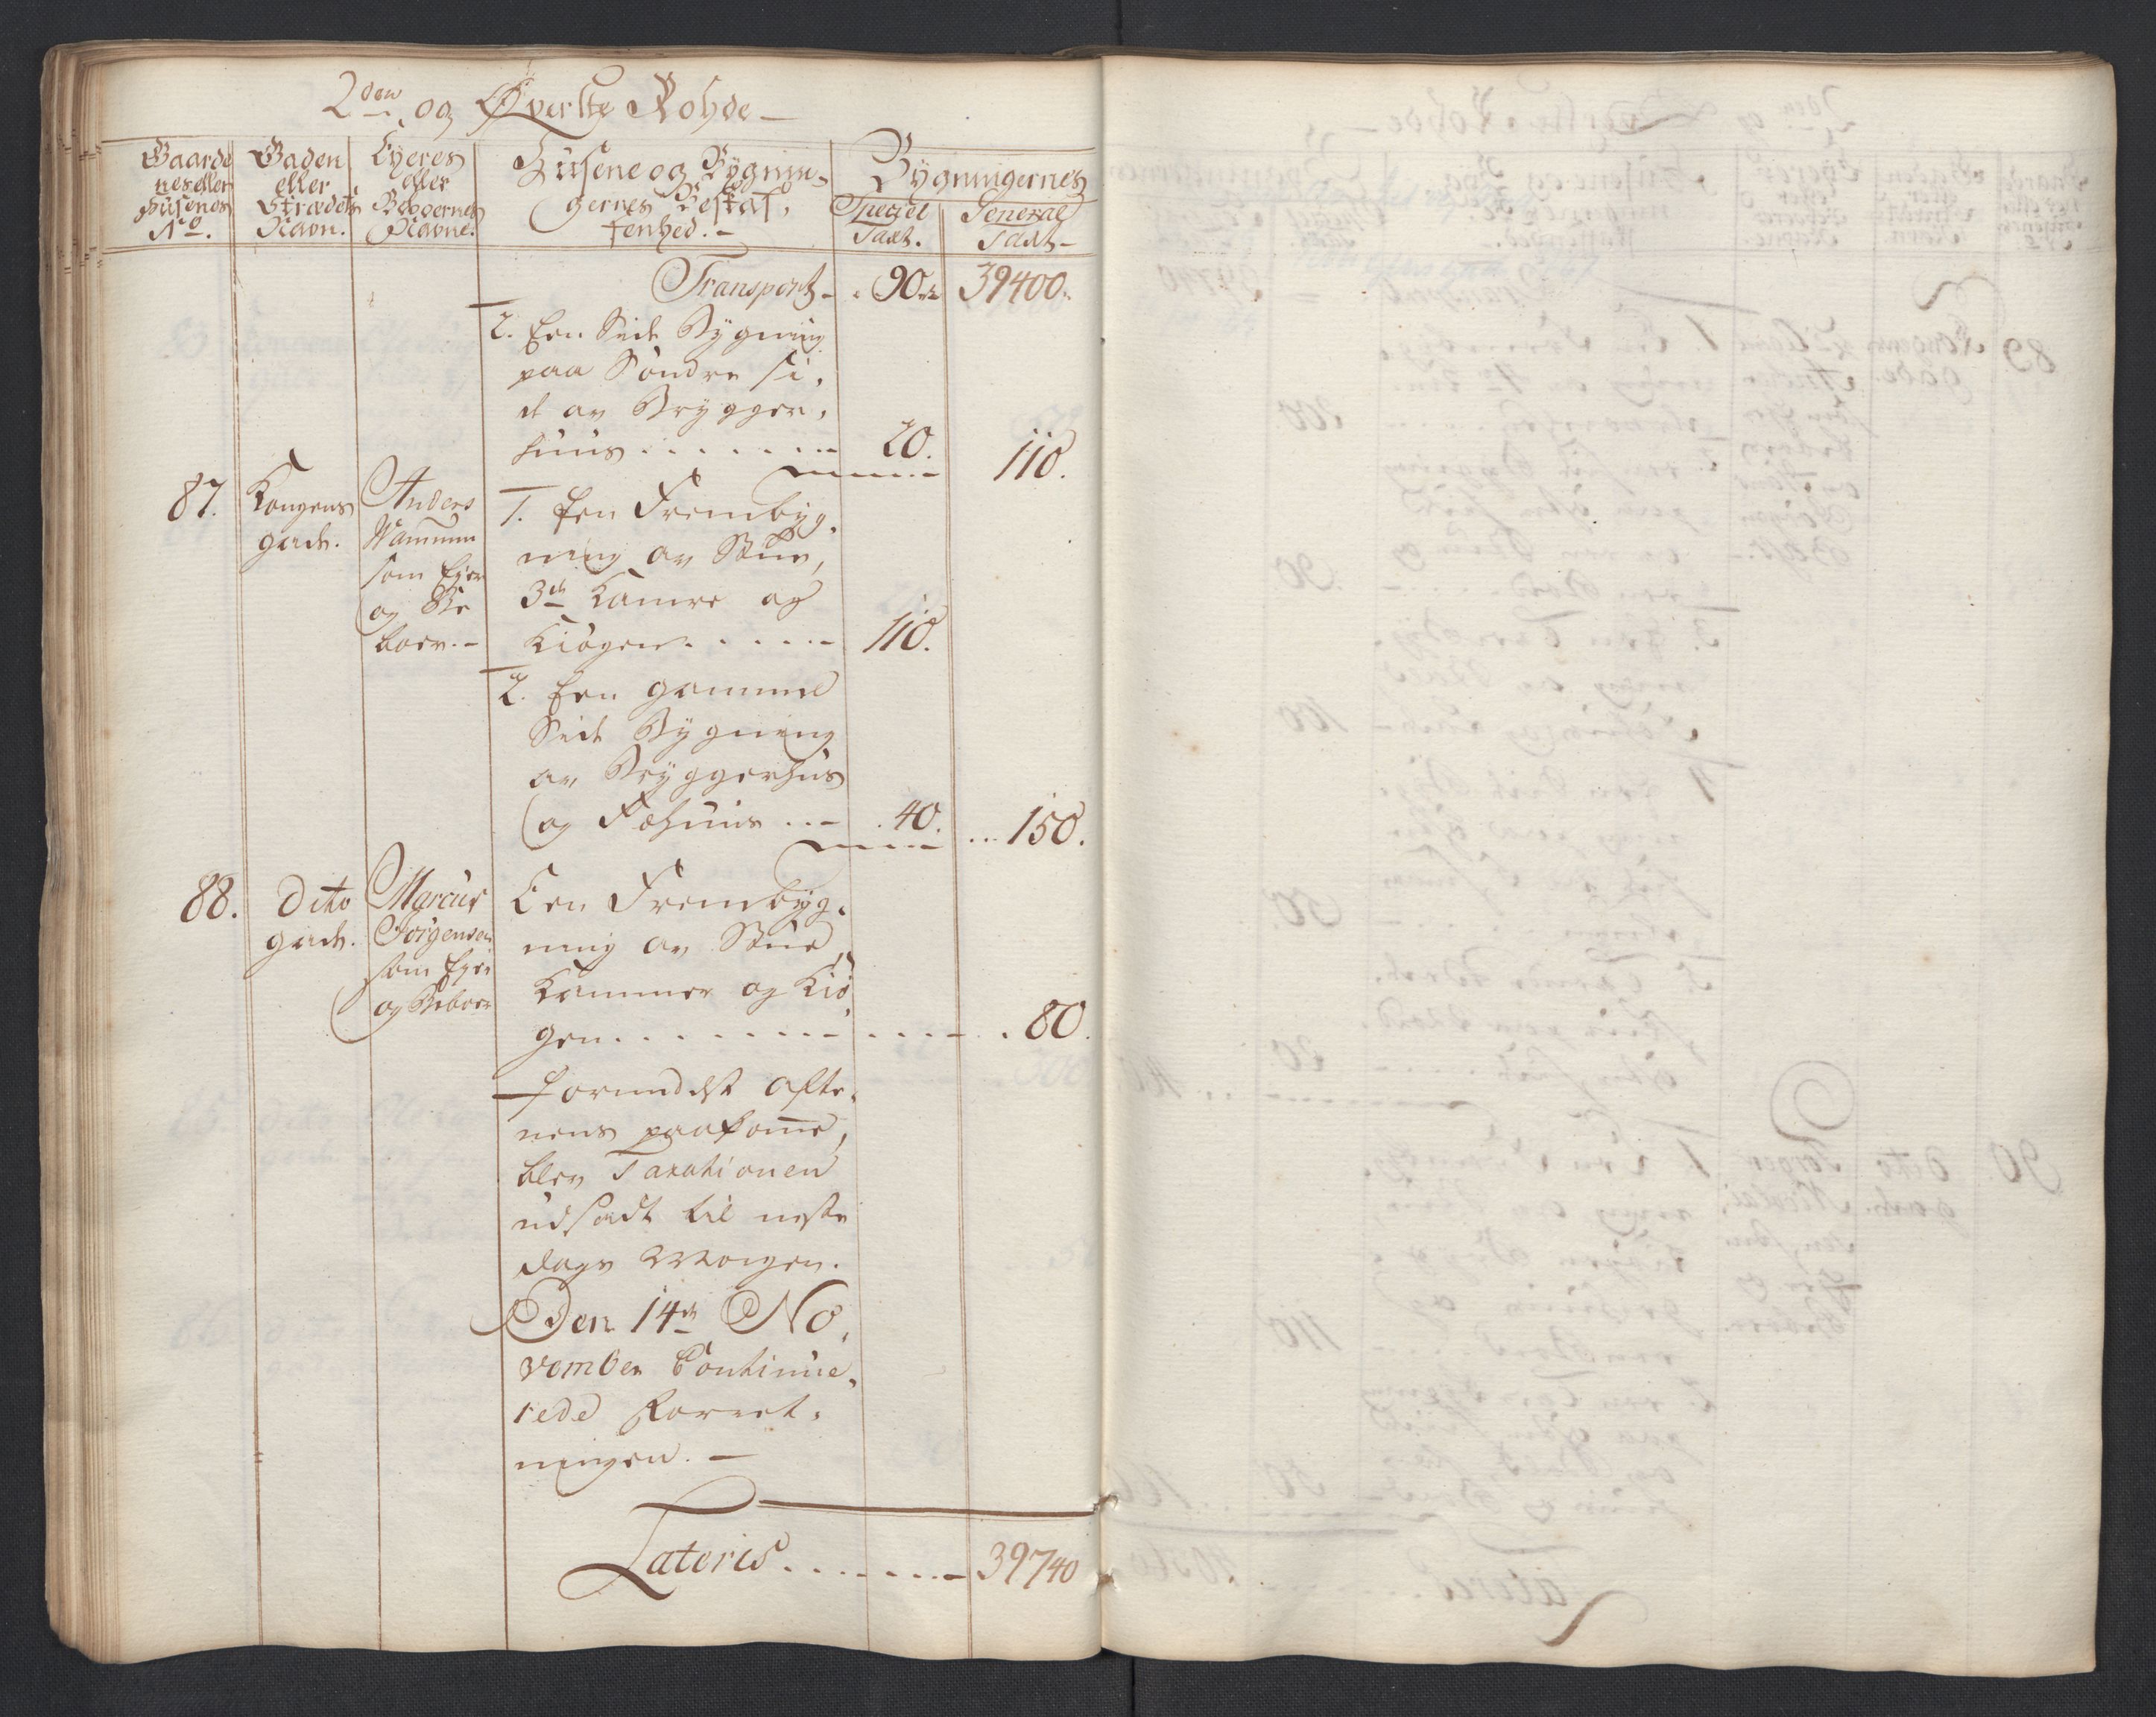 2den og Øverste Rohde -
Gaarde nes eller Husenes No.
Gaden eller Strædets Navn.
Eyeres eller Beboernes Navne.
Husene og Bygnin-
gernes Beskaf,
fenhed. -
Bygningernes
Speciel Taxt.
General Taxt -
Transport - 90 rd 39400.
2. Een Side Bygning
paa Søndre Si,
de av Brygger,
huus . . . . . . . 20. 110.
87. Kongens gade.
Anders
som Eyer
og Be
boer. -
1. Een Frembÿg,
ning av Stue,
3de Kamre og
Kiøgen . . . . . 110.
2. Een gammel
Side Bÿgning
av Brÿggerhus
og Fæhuus . . - 40. ... 150.
88. Dito gade.
Marcus
Jørgensen
som Eyer
og Beboer
Een Frembÿg,
ning av Stue,
Kammer og Kiø
gen . . . . . . . . . . . . 80.
formedelst Afte,
nens paakome,
blev Taxationen
udsadt til neste
Dags Morgen.
Den 14de No,
vember Continue,
rede Forret,
ningen. -
Lateris . . . . . . . - 39740